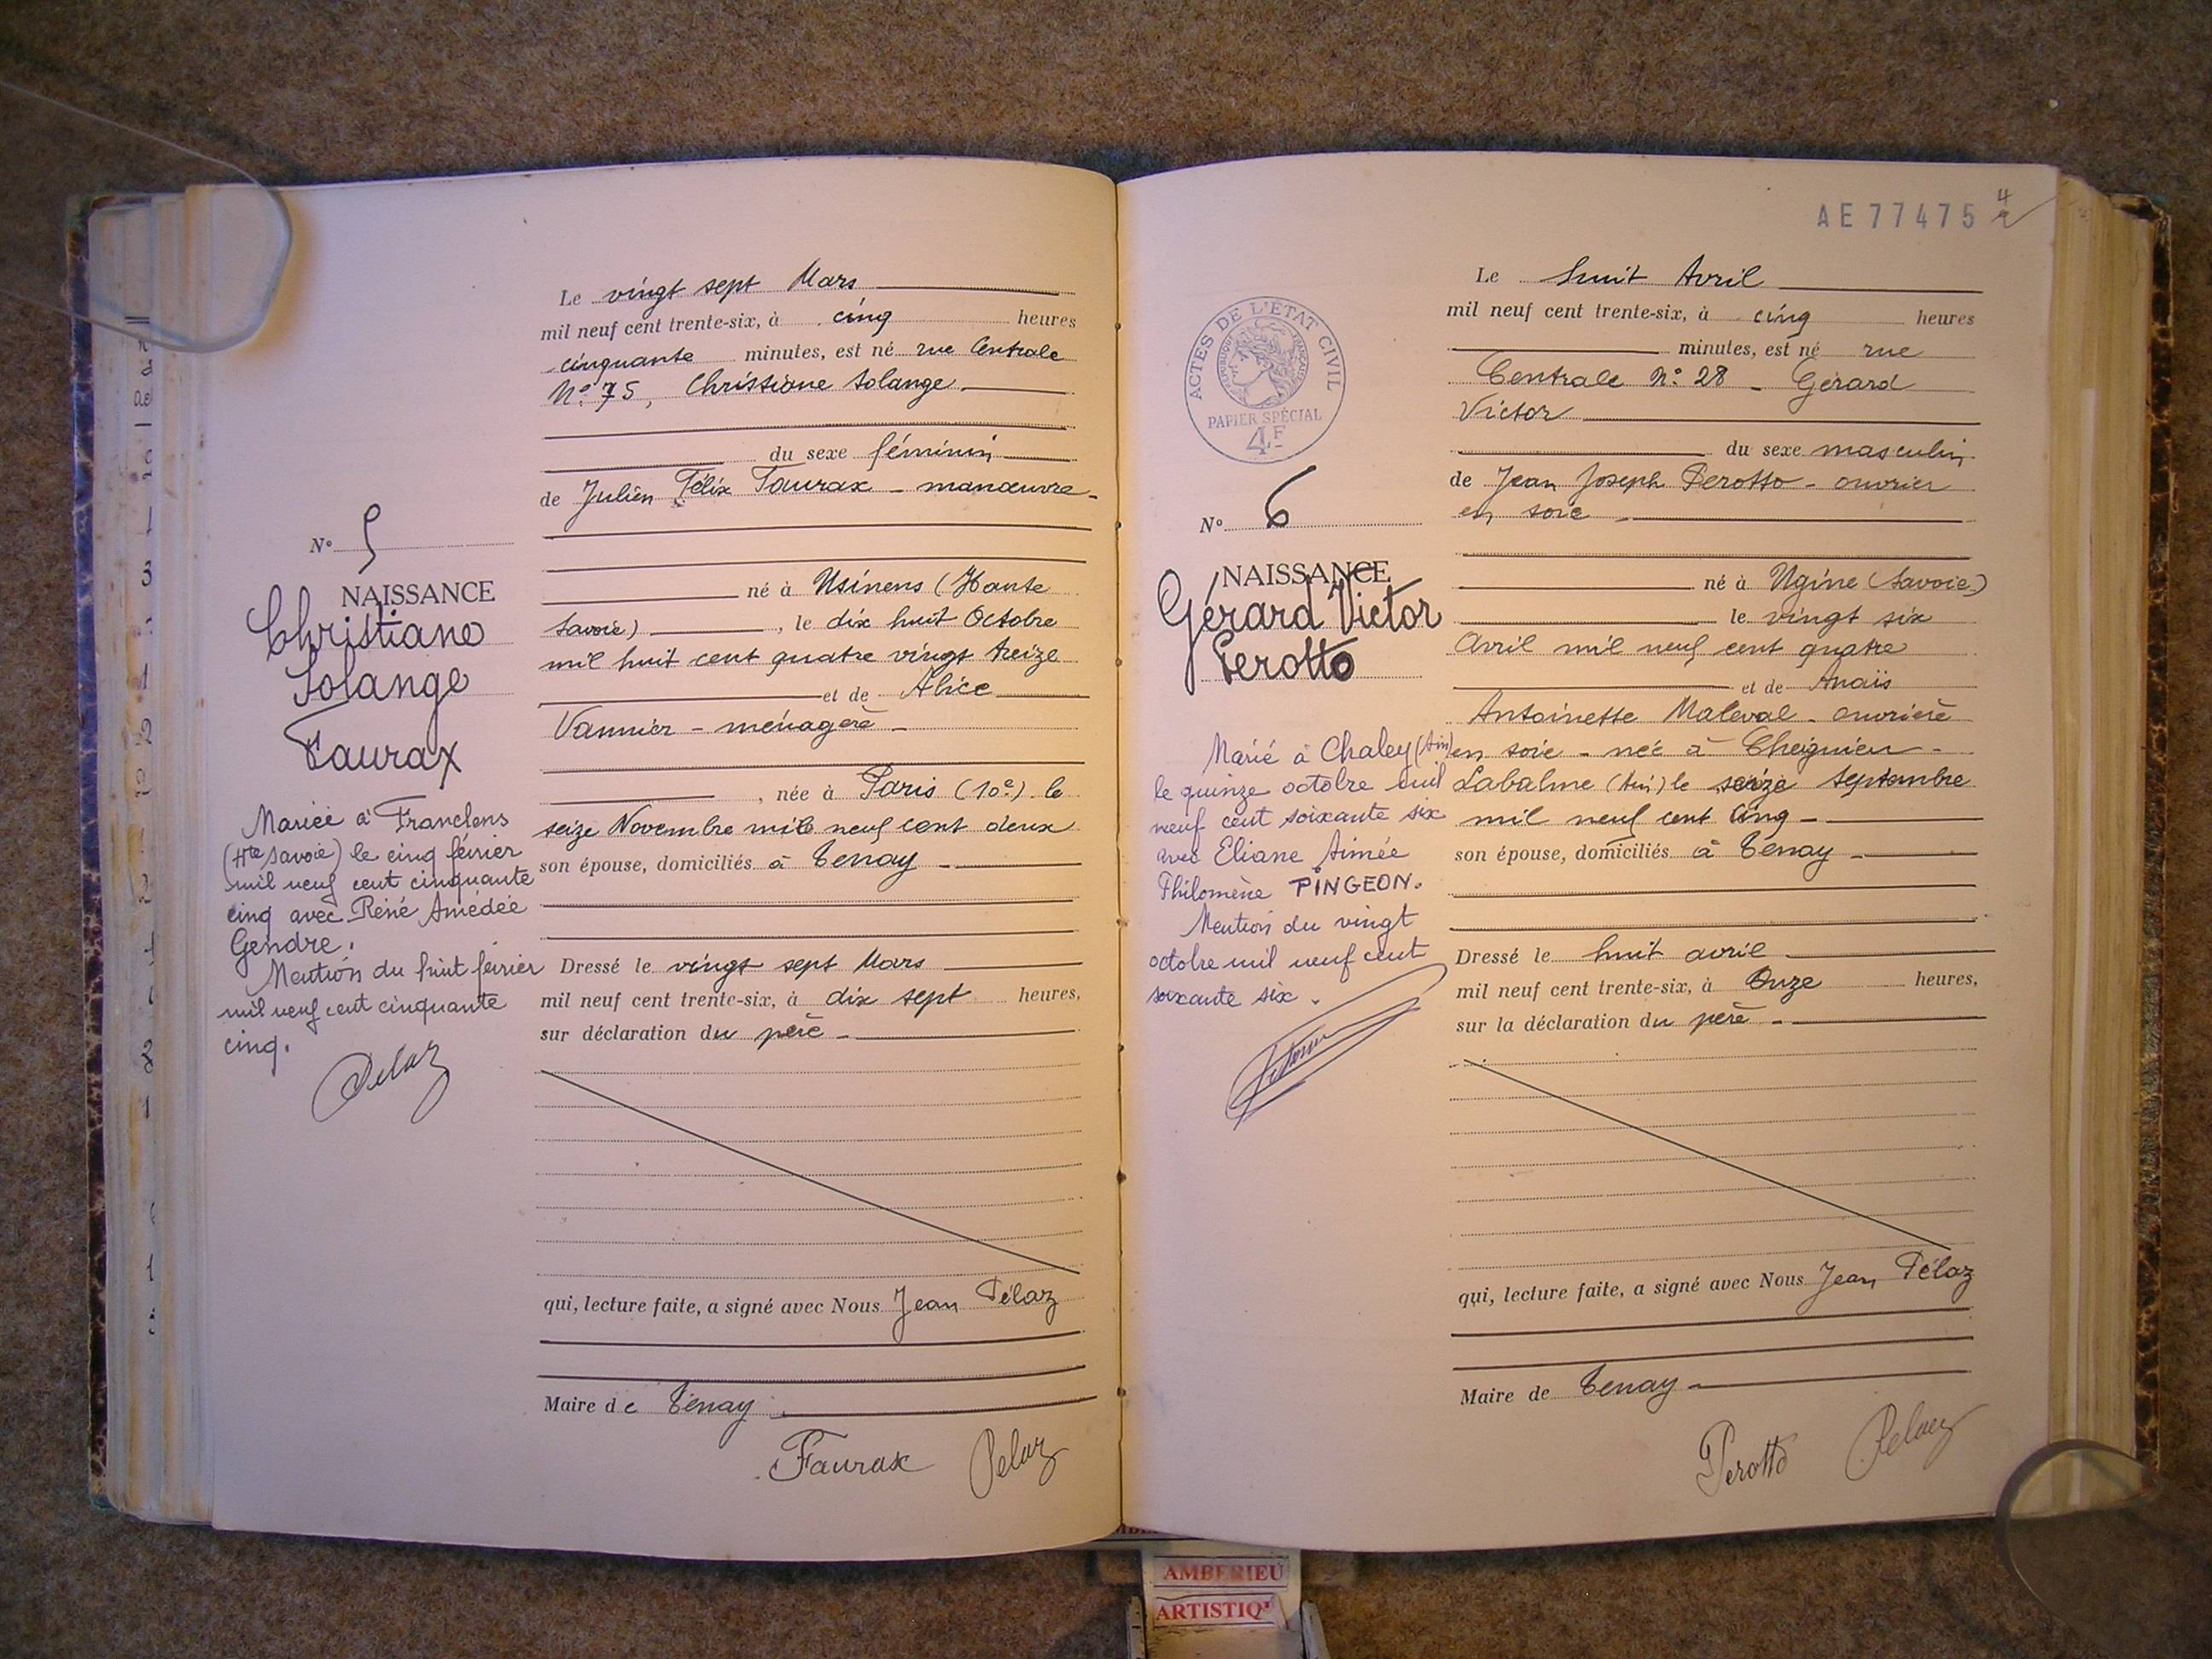 Le vingt sept Mars
mil neuf cent trente-six, à cinq heures
cinquante minutes, est né rue Centrale
N° 75, Christiane Solange
du sexe féminin
de Julien Félix Faurax - manœuvre -
N° 5
NAISSANCE
Christiane
Solange
Faurax
né à Usinens (Haute
Savoie), le dix huit Octobre
mil huit cent quatre vingt treize
et de Alice
Vannier - ménagère -
, née à Paris (10e) le
seize Novembre mil neuf cent deux
son épouse, domiciliés à Tenay -
Mariée à Franclens
(Hte Savoie) le cinq février
mil neuf cent cinquante
cinq avec René Amédée
Gendre.
Mention du huit février
mil neuf cent cinquante
cinq.
Pélaz
Dressé le vingt sept Mars
mil neuf cent trente-six, à dix sept heures,
sur déclaration du père -
qui, lecture faite, a signé avec Nous Jean Pélaz
Maire de Tenay
Faurax Pelaz
AE 77475
4
Le huit Avril
mil neuf cent trente-six, à cinq heures
minutes, est né rue
Centrale N° 28 - Gérard
Victor
du sexe masculin
de Jean Joseph Perotto - ouvrier
en soie -
ACTES DE L'ETAT CIVIL
REPUBLIQUE FRANÇAISE
PAPIER SPÉCIAL
4F
N° 6
NAISSANCE
Gérard Victor
Perotto
né à Ugine (Savoie)
le vingt six
Avril mil neuf cent quatre
et de Anaïs
Antoinette Maleval - ouvrière
en soie - née à Cheignieu -
Labalme (Ain) le seize Septembre
mil neuf cent cinq -
son épouse, domiciliés à Tenay -
Marié à Chaley (Ain)
le quinze octobre mil
neuf cent soixante six
avec Eliane Aimée
Philomène PINGEON.
Mention du vingt
octobre mil neuf cent
soixante six.
Dressé le huit avril
mil neuf cent trente-six, à Onze heures,
sur la déclaration du père -
qui, lecture faite, a signé avec Nous Jean Pélaz
Maire de Tenay -
Perotto Pelaz
AMBERIEU
ARTISTIQ